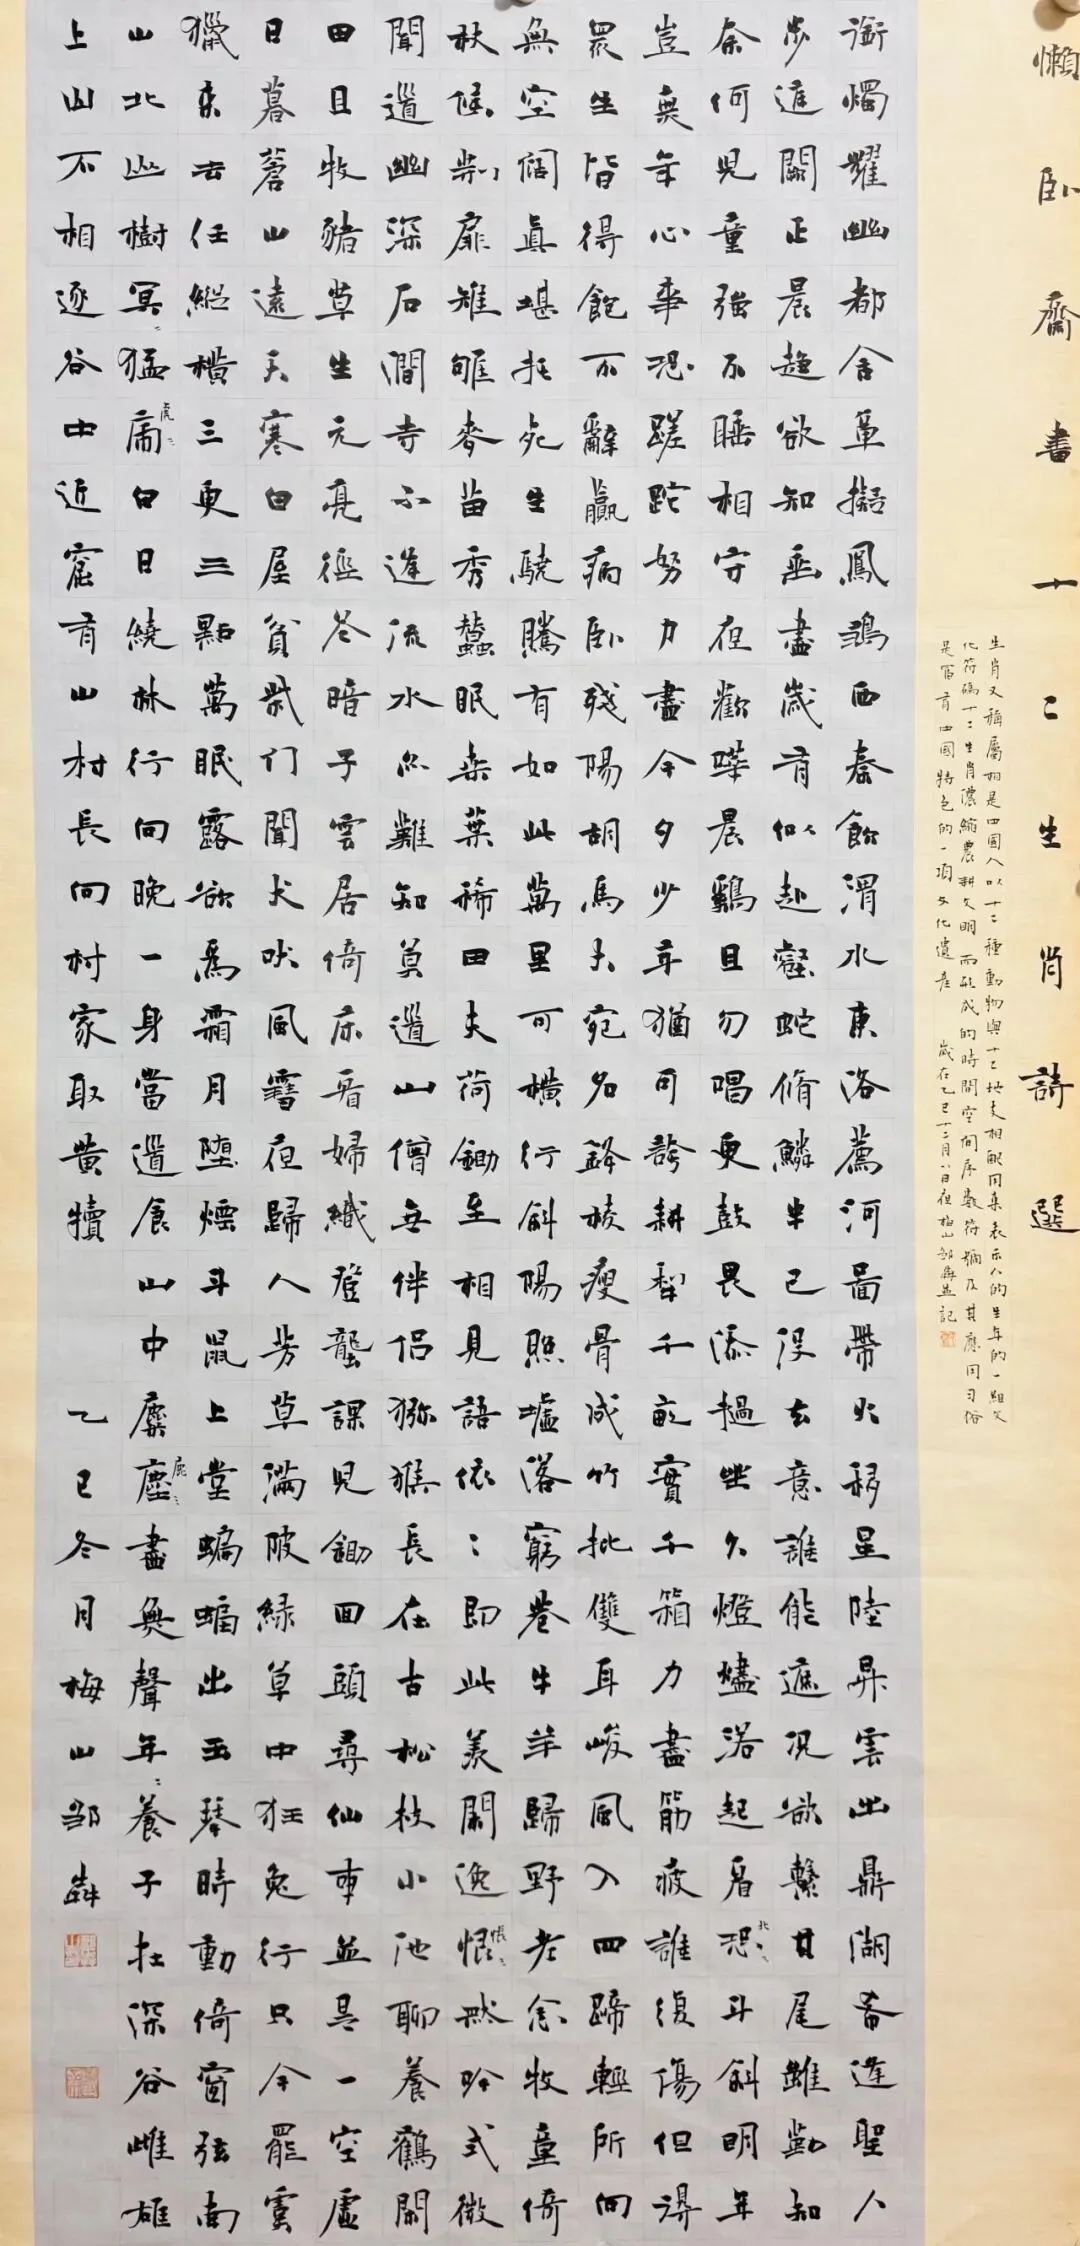 懶臥齋書十二生肖詩選
生肖又稱屬相是中國人以十二種動物與十二地支相配用來表示人的生年的一組文
化符碼十二生肖濃縮農耕文明而形成的時間空間序數符碼及其應用習俗
是富有中國特色的一項文化遺產 歲在乙巳十二月八日夜梅山鄒犇並記
銜燭耀幽都含章擬鳳鶵西秦飲渭水東洛薦河啚帶火移星陸昇雲出鼎湖希逢聖人
步進闕正晨趨欲知垂盡歲有似赴壑蛇脩鱗半已没去意誰能遮況欲繫其尾雖勤知
奈何兒童強不睡相守夜歡嘩晨鷄且勿唱更鼓畏添撾坐久燈燼落起看恐北斗斜明年
豈無年心事恐蹉跎努力盡今夕少年猶可誇耕犂千畝實千箱力盡筋疲誰復傷但得
眾生皆得飽不辭羸病臥殘陽胡馬大宛名鋒棱瘦骨成竹批雙耳峻風入四蹄輕所向
無空闊真堪托死生驍騰有如此萬里可橫行斜陽照墟落窮巷牛羊歸野老念牧童倚
秋候荊扉雉雊麥苗秀蠶眠桑葉稀田夫荷鋤至相見語依〻即此羨閑逸恨〻悵然吟式微
聞道幽深石澗寺不逢流水亦難知莫道山僧無伴侶獼猴長在古松枝小池聊養鶴閑
田且牧豬草生元亮徑冬暗子雲居倚床看婦織登壟課兒鋤回頭尋仙事並是一空虛
日暮蒼山遠天寒白屋貧柴门聞犬吠風雪夜歸人芳草滿陂綠草中狂兔行只今罷虞
獵來去任縱橫三更三點萬眠露欲為霜月墮煙斗鼠上堂蝙蝠出玉琴時動倚窗弦南
山北山樹冥〻猛虎〻白日繞林行向晚一身當道食山中麋鹿〻盡無聲年〻養子在深谷雌雄
上山不相逐谷中近窟有山村長向村家取黃犢 乙巳冬月梅山鄒犇